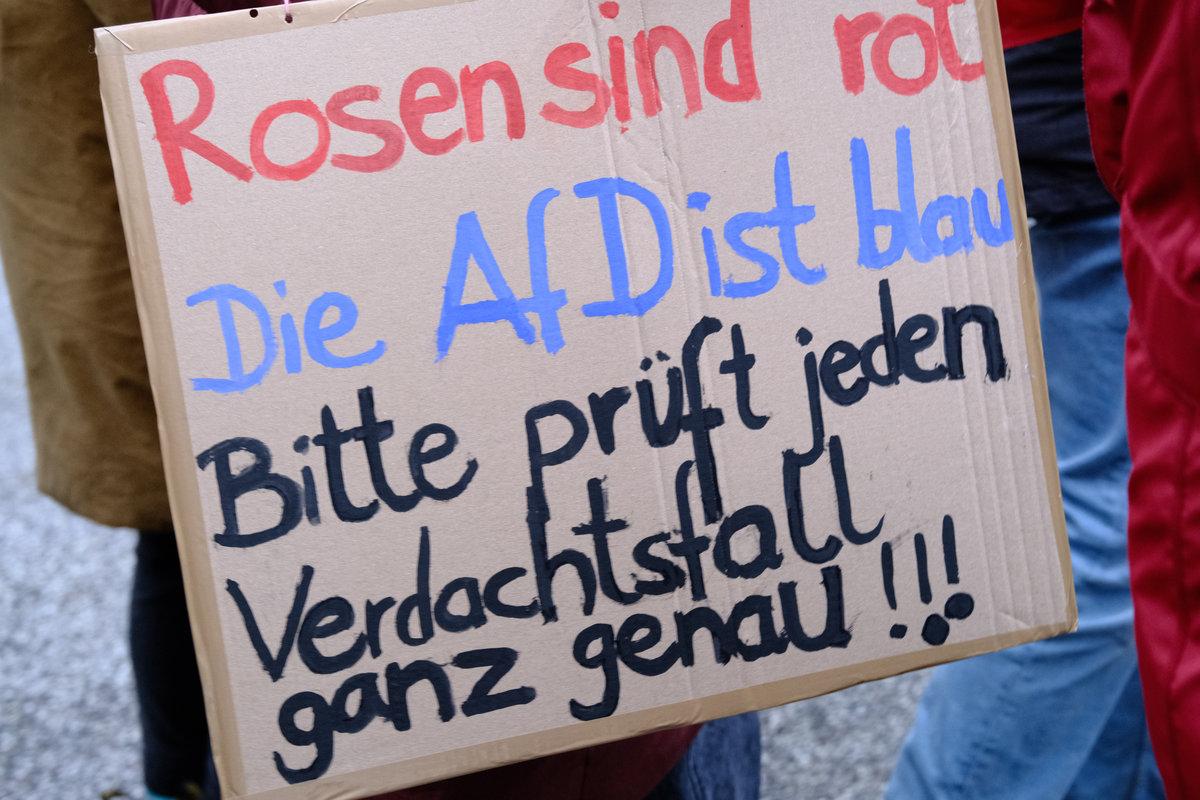 Rosen sind rot
Die AfD ist blau
Bitte prüft jeden
Verdachtsfall
ganz genau !!!